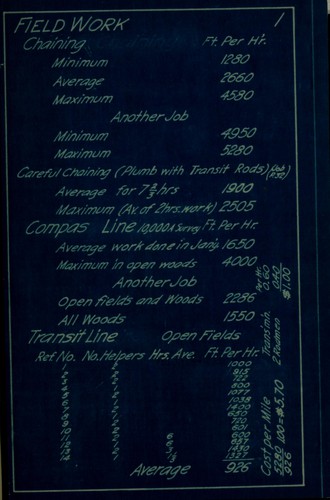 FIELD WORK 1
Chaining Ft. Per Hr.
Minimum 1280
Average 2660
Maximum 4580
Another Job
Minimum 4950
Maximum 5280
Careful Chaining (Plumb with Transit Rods)
Average for 7½ hrs 1900
Maximum (Av. of 2hrs. work) 2505
Compas Line 10,000 A Survey Ft. Per Hr.
Average work done in Jan'y. 1650
Maximum in open woods 4000
Another Job
Open fields and Woods 2286
All Woods 1550
Transit Line Open Fields
Ref No. No. Helpers Hrs. Ave. Ft. Per Hr.
1000
915
722
800
1077
1038
1400
720
601
600
Average 926
Per Hr.
Transitm'n. 0.60
2 Rodmen 0.40
$1.00
Cost per Mile
5280 / 926 1.00 = $5.70